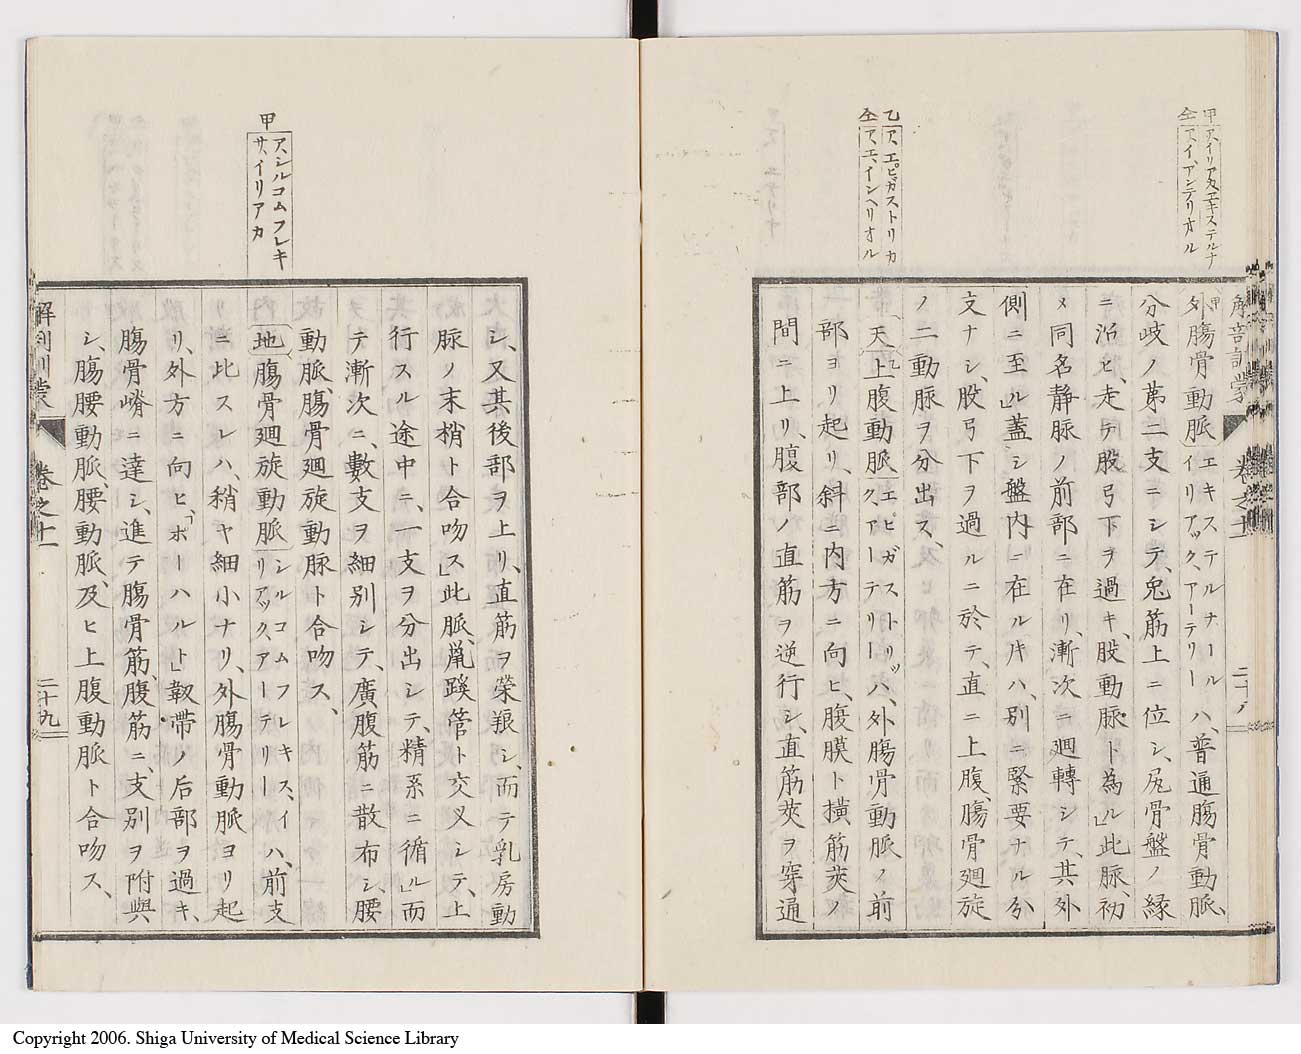 甲 ア、イリアカ、エキステルナ
仝 ア、イ、アンテリオル
乙 ア、エピガストリカ
仝 ア、エ、インヘリオル
解剖訓蒙 卷之十一 二十八
甲外膓骨動脈 エキステルナール イリアック、アーテリー ハ、普通膓骨動脈、
分岐ノ苐二支ニシテ、兎筋上ニ位シ、尻骨盤ノ縁
ニ沿ヒ、走テ股弓下ヲ過キ、股動脈ト為ル」此脈、初
メ同名静脈ノ前部ニ在リ、漸次ニ廻轉シテ、其外
側ニ至ル」蓋シ盤内ニ在ル𬼀ハ、別ニ緊要ナル分
支ナシ、股弓下ヲ過ルニ於テ、直ニ上腹、膓骨廻旋
ノ二動脈ヲ分出ス、
天乙上腹動脈 エピガストリッ ク、アーテリー ハ、外膓骨動脈ノ前
部ヨリ起リ、斜ニ内方ニ向ヒ、腹膜ト撗筋莢ノ
間ニ上リ、腹部ノ直筋ヲ逆行シ、直筋莢ヲ穿通
甲 ア、シルコムフレキ
サ、イリアカ
シ、又其後部ヲ上リ、直筋ヲ榮粮シ、而テ乳房動
脈ノ末梢ト合吻ス」此脈、鼡蹊管ト交叉シテ、上
行スル途中ニ、一支ヲ分出シテ、精系ニ循ル」而
テ漸次ニ、數支ヲ細别シテ、廣腹筋ニ散布シ、腰
動脈、膓骨廻旋動脈ト合吻ス、
地膓骨廻旋動脈 シルコムフレキス、イ リアック、アーテリー ハ、前支
ニ比スレハ、稍ヤ細小ナリ、外膓骨動脈ヨリ起
リ、外方ニ向ヒ、「ポーハルト」靱帶ノ后部ヲ過キ、
膓骨嵴ニ達シ、進テ膓骨筋、腹筋ニ、支别ヲ附與
シ、膓腰動脈、腰動脈、及ヒ上腹動脈ト合吻ス、
解剖訓蒙 卷之十一 二十九
Copyright 2006. Shiga University of Medical Science Library